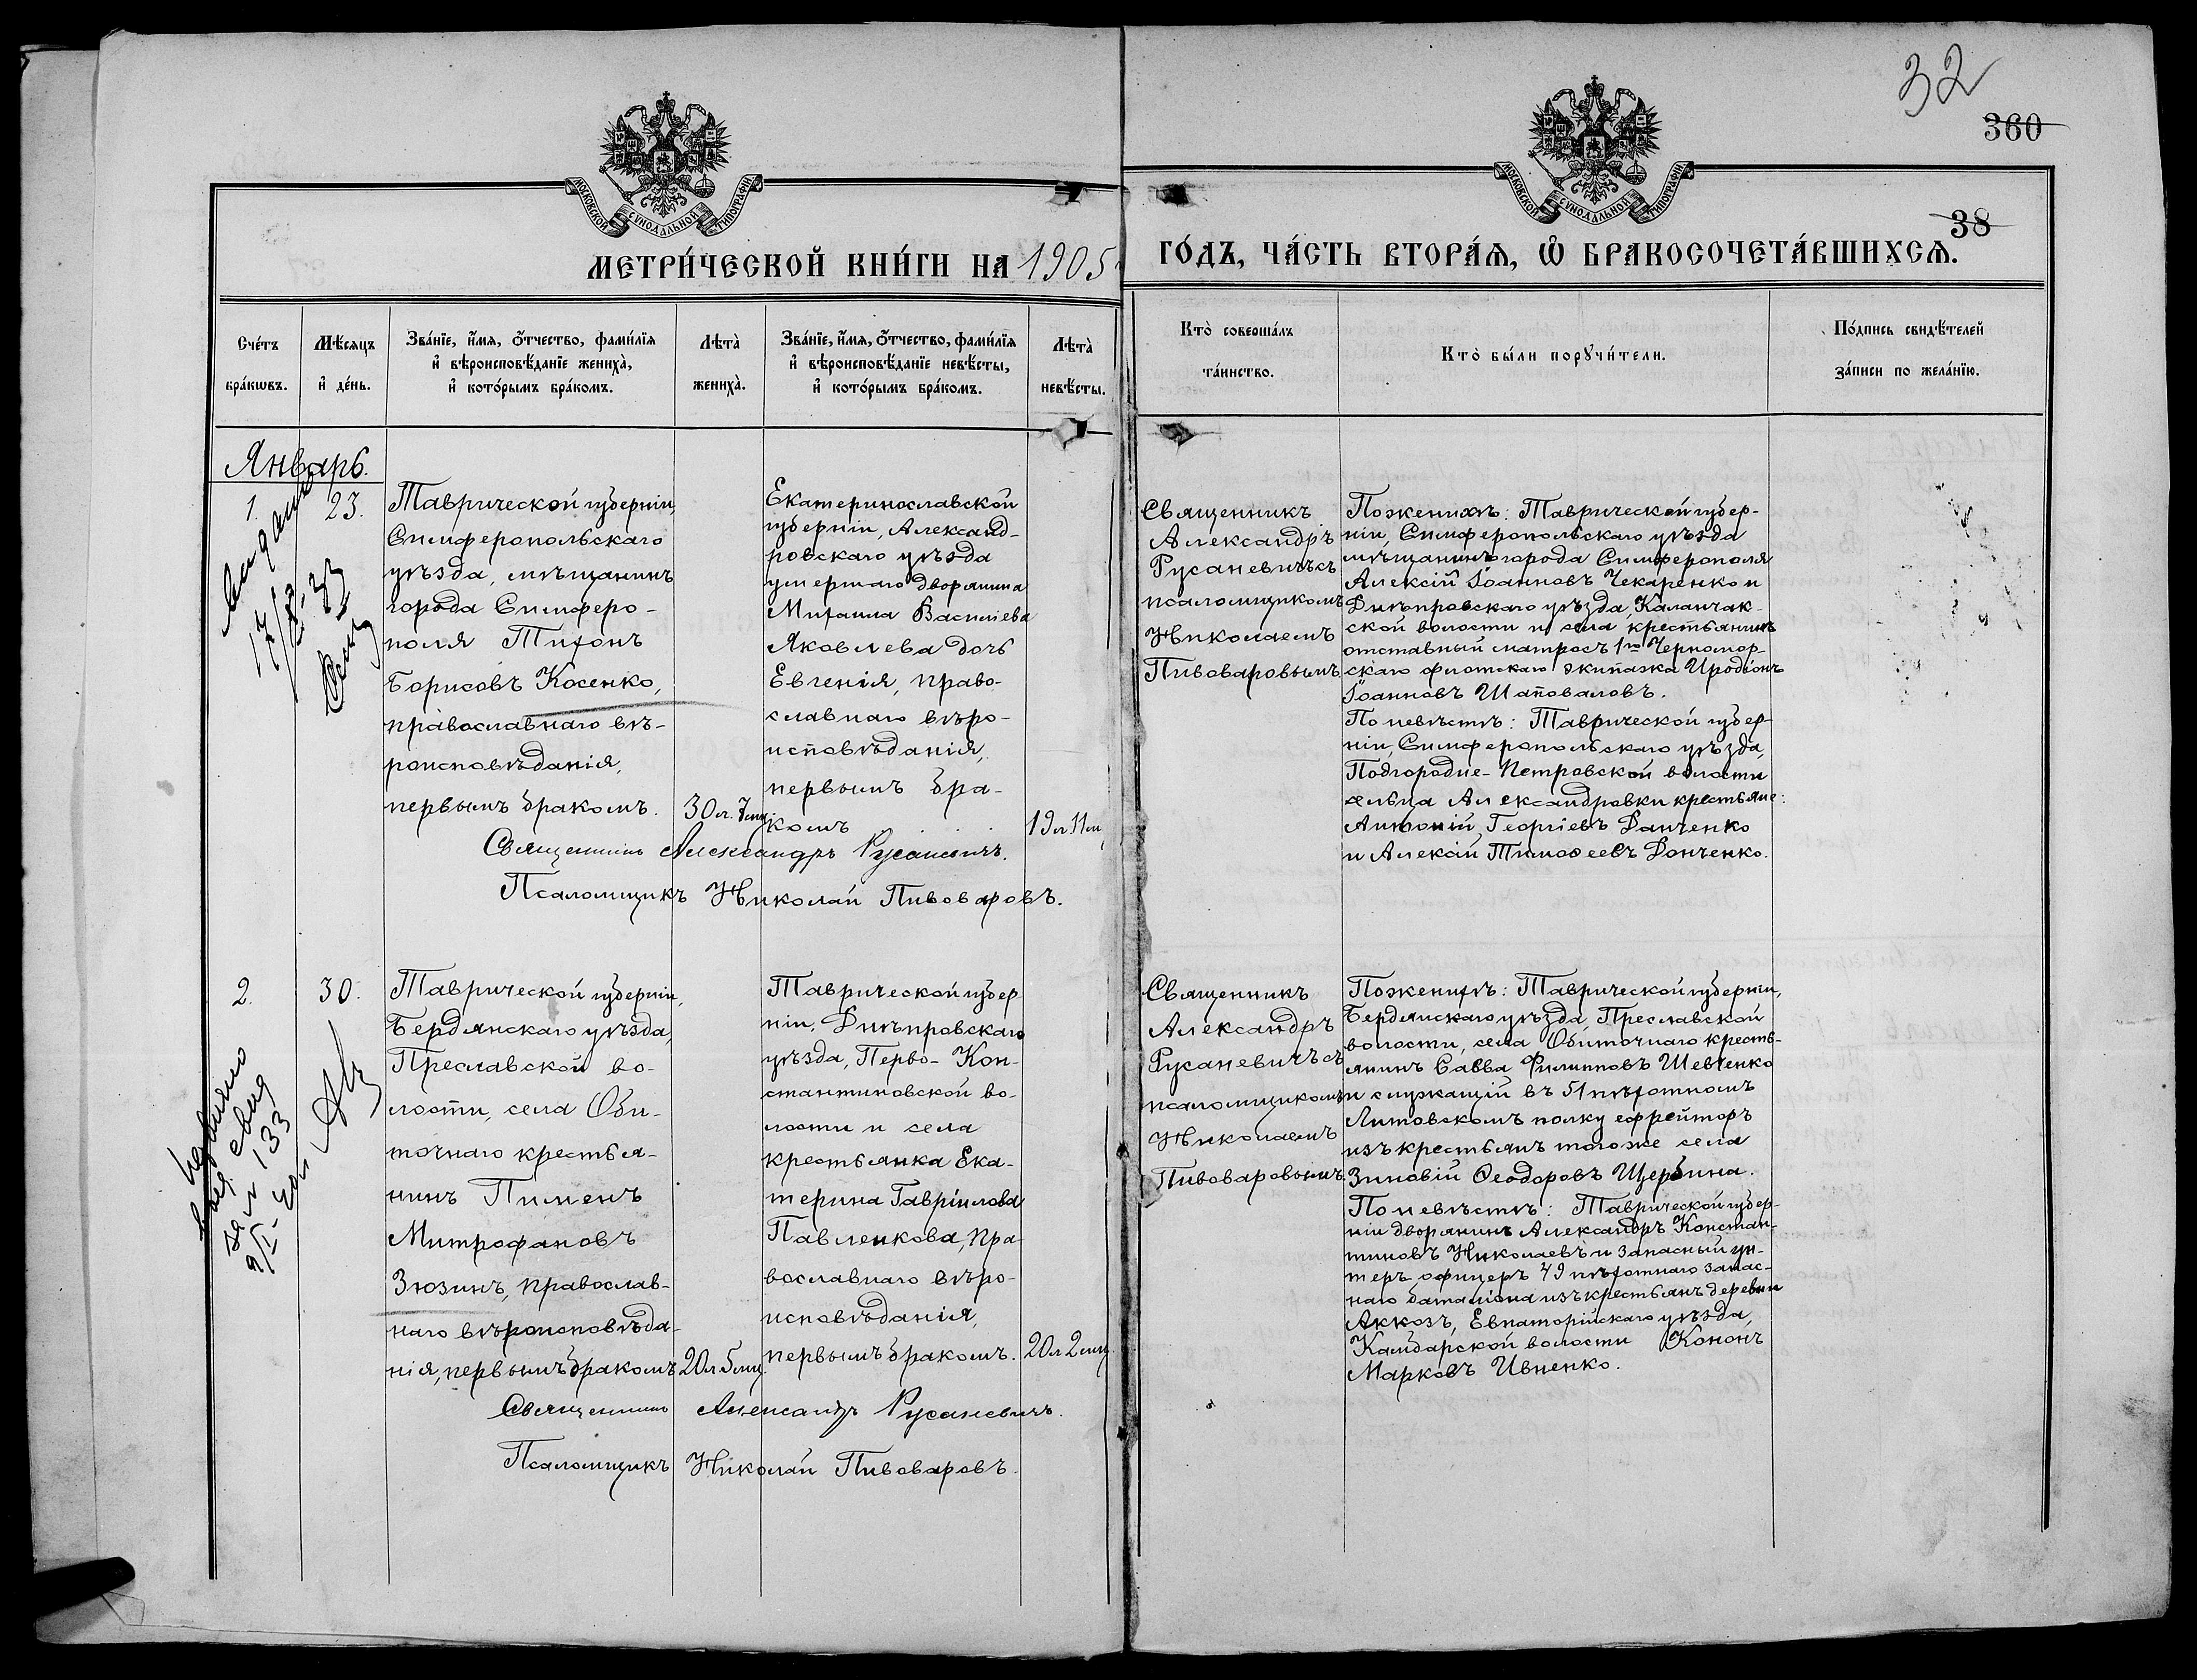 32
360
38
МОСКОВСКОЙ СѴНОДАЛЬНОЙ ТИПОГРАФІИ
МОСКОВСКОЙ СѴНОДАЛЬНОЙ ТИПОГРАФІИ
МЕТРИ́ЧЕСКОЙ КНИ́ГИ НА 1905
ГО́ДЪ, ЧА́СТЬ ВТОРА́Ѧ, Ѽ БРАКОСОЧЕТА́ВШИХСѦ.
Сче́тъ
бра́кѡвъ.
Мѣ́сяцъ
и҆ де́нь.
Зва́нїе, и҆́мѧ, ѻ҆́тчество, фами́лїѧ
и҆ вѣроисповѣ́данїе жениха̀,
и҆ кото́рымъ бра́комъ.
Лѣта̀
жениха̀.
Зва́нїе, и҆́мѧ, ѻ҆́тчество, фами́лїѧ
и҆ вѣроисповѣ́данїе невѣ́сты,
и҆ кото́рымъ бра́комъ.
Лѣта̀
невѣ́сты.
Кто̀ соверша́лъ
та́инство.
Кто̀ бы́ли порꙋчи́тели.
По́дпись свидѣ́телей
за́писи по жела́нїю.
Январь.
1.
23.
Таврической губерніи,
Симферопольскаго
уѣзда, мѣщанинъ
города Симферо-
поля Тихонъ
Борисовъ Косенко,
православнаго вѣ-
роисповѣданія,
первымъ бракомъ.
30 л. 7 мц.
Екатеринославской
губерніи, Александ-
ровскаго уѣзда
умершаго дворянина
Михаила Васильева
Яковлева дочь
Евгенія, право-
славнаго вѣро-
исповѣданія,
первымъ бра-
комъ
19 л 11 м
Священникъ Александръ Русаневичъ.
Псаломщикъ Николай Пивоваровъ.
Священникъ
Александръ
Русаневичъ съ
псаломщикомъ
Николаемъ
Пивоваровымъ
По женихѣ: Таврической губер-
ніи, Симферопольскаго уѣзда
мѣщанинъ города Симферополя
Алексій Іоанновъ Чекаренко и
Днѣпровскаго уѣзда, Каланчак-
ской волости и села крестьянинъ
отставный матросъ 1го Черномор-
скаго флотскаго экипажа Иродіонъ
Іоанновъ Шаповаловъ.
По невѣстѣ: Таврической губер-
ніи, Симферопольскаго уѣзда,
Подгородне-Петровской волости
сельца Александровки крестьяне:
Антоній Георгіевъ Данченко
и Алексій Тимоѳеевъ Донченко.
2.
30.
Таврической губерніи,
Бердянскаго уѣзда,
Преславской во-
лости, села Оби-
точнаго крестья-
нинъ Пименъ
Митрофановъ
Зюзинъ, православ-
наго вѣроисповѣда-
нія, первымъ бракомъ
20 л 5 мц.
Таврической губер
ніи, Днѣпровскаго
уѣзда, Перво-Кон-
стантиновской во-
лости и села
крестьянка Ека-
терина Гавріилова
Павленкова, пра
вославнаго вѣро-
исповѣданія,
первымъ бракомъ.
20 л 2 мц
Священникъ Александръ Русаневичъ.
Псаломщикъ Николай Пивоваровъ.
Священникъ
Александръ
Русаневичъ съ
псаломщикомъ
Николаемъ
Пивоваровымъ.
По женихѣ: Таврической губерніи,
Бердянскаго уѣзда, Преславской
волости, села Обиточнаго кресть-
янинъ Савва Филипповъ Шевченко
и служащій въ 51 пѣхотномъ
Литовскомъ полку ефрейторъ
изъ крестьянъ того же села
Зиновій Ѳеодоровъ Щербина.
По невѣстѣ: Таврической губер-
ніи дворянинъ Александръ Констан-
тиновъ Николаевъ и запасный ун-
теръ офицеръ 49 пѣхотнаго запас-
наго баталіона изъ крестьянъ деревни
Аккозъ, Евпаторійскаго уѣзда,
Камбарской волости Кононъ
Марковъ Ивненко.